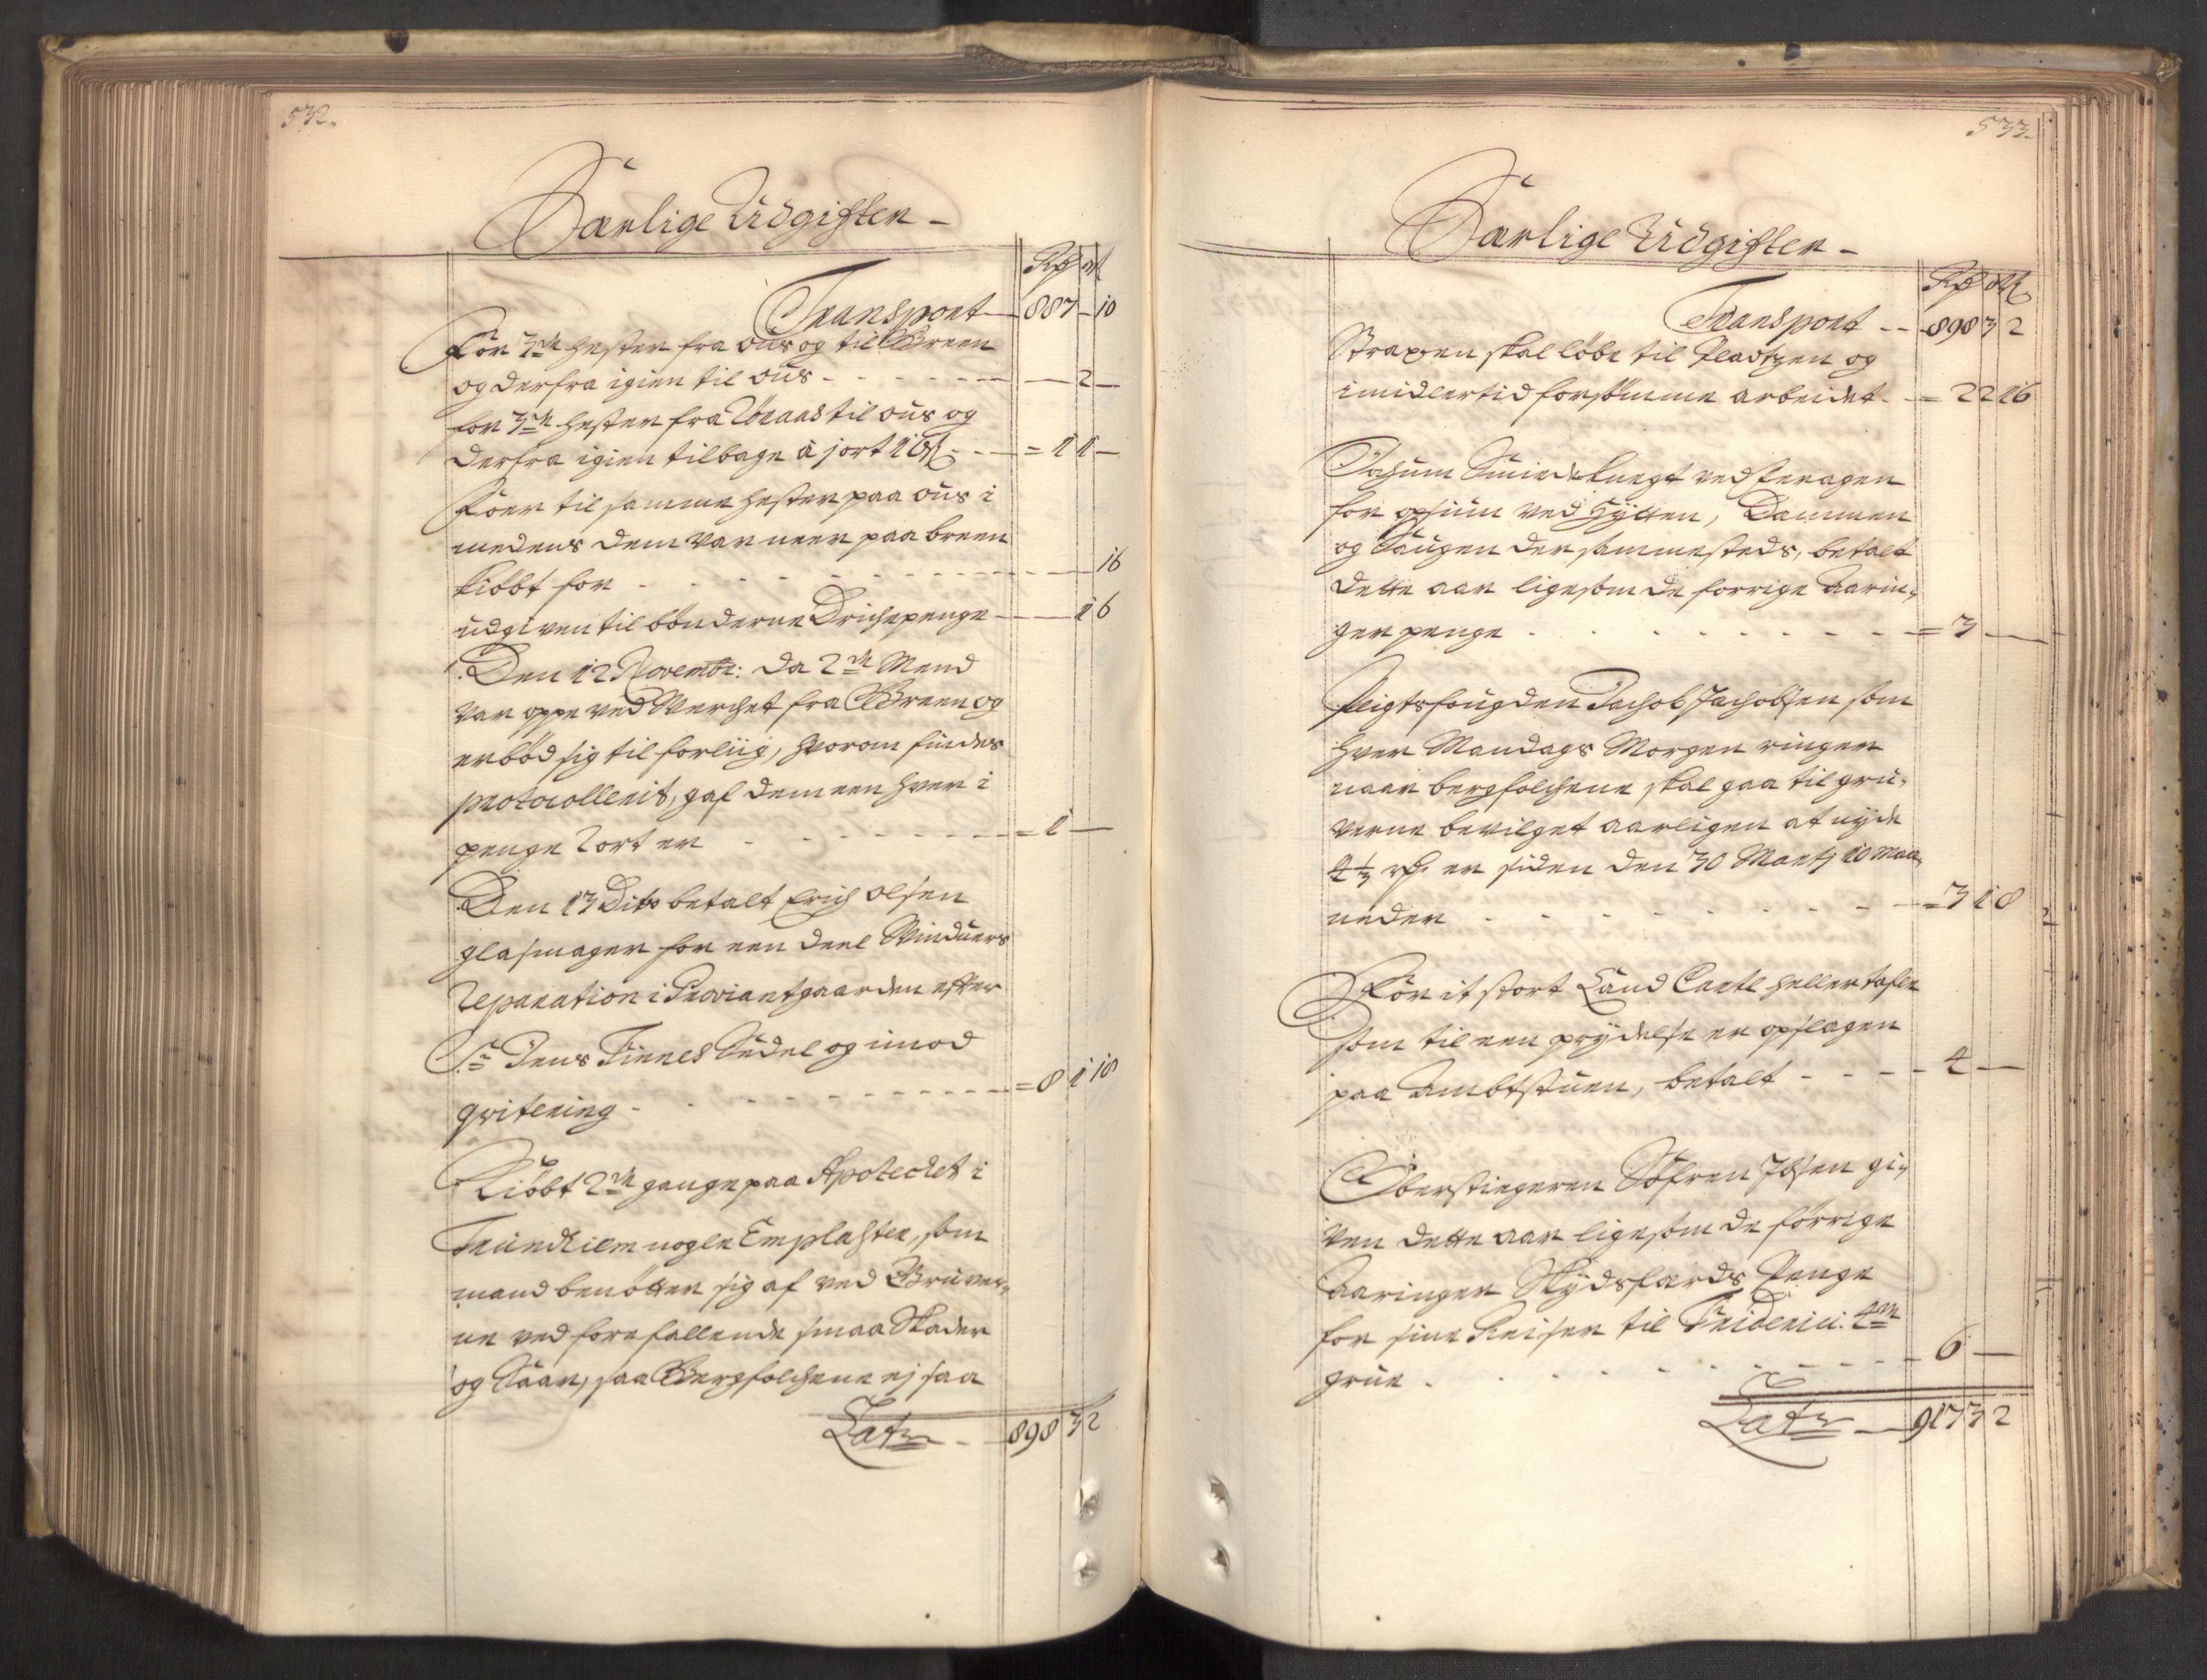 532.
Særlige Udgifter -
Rdr ort ß
Transport - 887 - 10
For 3de hester fra Ous og til Breen
og derfra igien til ous - - - 2 -
for 3de hester fra Tönaas til ous og
derfra igien tilbage à jort 16ß - - = 1 1 -
Foer til samme hester paa ous i
medens dem var neer paa breen
kiöbt for - - - 16
udgiven til bönderne Drichepenge - - 1 6
Den 12 Novembr: da 2de Mend
var oppe ved Werchet fra Breen og
erböd sig til forliig, hvorom findes
protocollerit, gaf dem een hver i
penge 2 ort er - - - = 1 -
Den 13 Dito betalt Erich Olsen
glasmager for een deel Vinduers
Reparation i Proviantgaarden efter
Sr Jens Finnes Sedel og imod
qvitering - - - = 8 1 18
Kiöbt 2de gange paa Apotechet i
Trundhiem nogle Emplaster, som
mand benötter sig af ved Gruver-
ne ved forefallende smaa Skader
og Saar, saa Bergfolchene ej saa
Latr - - 898 3 2
533.
Særlige Udgifter -
Rdr ort ß
Transport - - 898 3 2
Straxen skal löbe til Pladtzen og
imidlertid forsömme arbeidet - = 2 2 16
Jochum Smideknegt ved Feragen
for opsiun ved Hÿtten, Dammen
og Saugen der sammesteds, betalt
dette aar ligesom de forrige Aarin-
ger penge - - - = 3 -
Stigtsfougden Jachob Jachobsen som
hver Mandags Morgen ringer
naar bergfolchene skal gaa til gru-
verne bevilget aarligen at nÿde
4 1/3 rdr er siden den 30 Martj 10 Maa-
neder - - - = 3 1 8
For it stort Land Carte heller tafle
som til een prÿdelse er opslagen
paa Ambtstuen, betalt - - - 4 -
Oberstiegeren Söfren Ibsen gi-
ven dette aar ligesom de förrige
Aaringer Skÿdsfærds Penge
for sine Reiser til Friderici 4de
grue - - - 6 -
Latr - 917 3 2